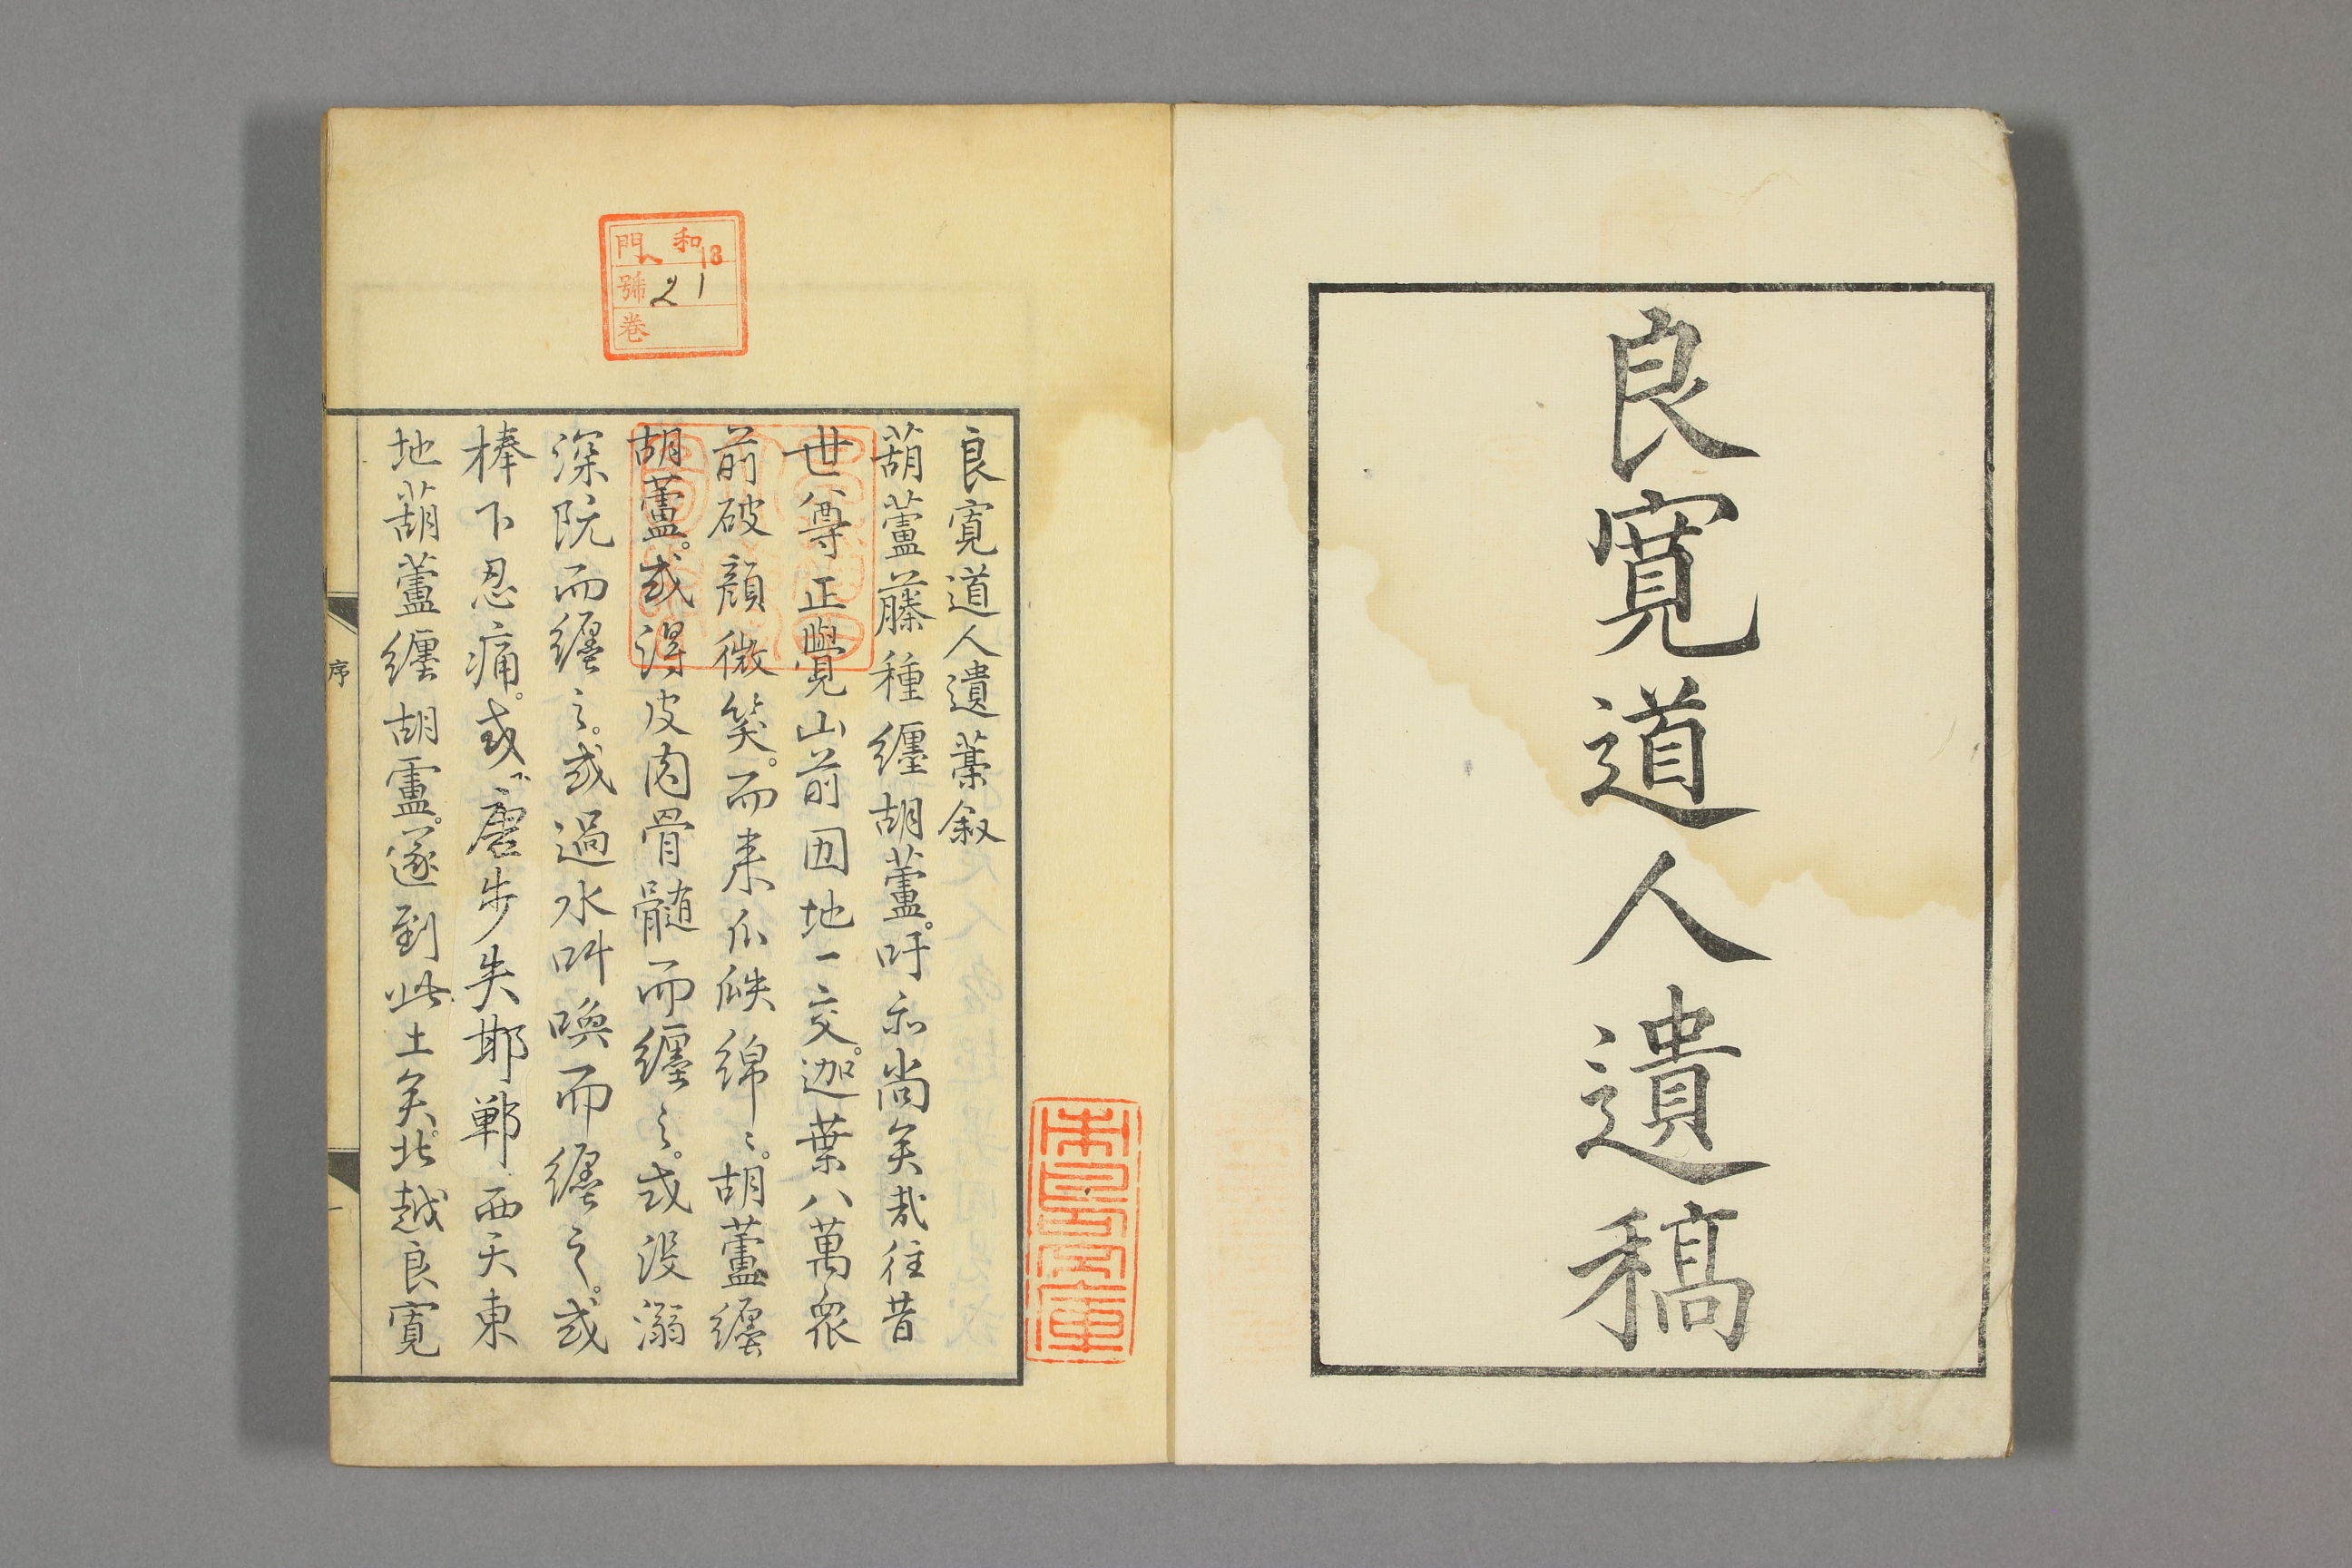 良寛道人遺稿
良寛道人遺藁叙
葫蘆藤種纏胡蘆。吁和尚矣哉往昔
世尊正覺山前囡地一交。迦葉八萬衆
前破顔微笑。而来瓜瓞綿〻。胡蘆纏
胡蘆。或得皮肉骨髄而纏之。或没溺
深阬而纏之。或過水叫喚而纏之。或
棒下忍痛。或唐步失邯鄲西天東
地葫蘆纏胡盧。遂到此土矣。北越良寛
序
一
和18
門
號21
卷